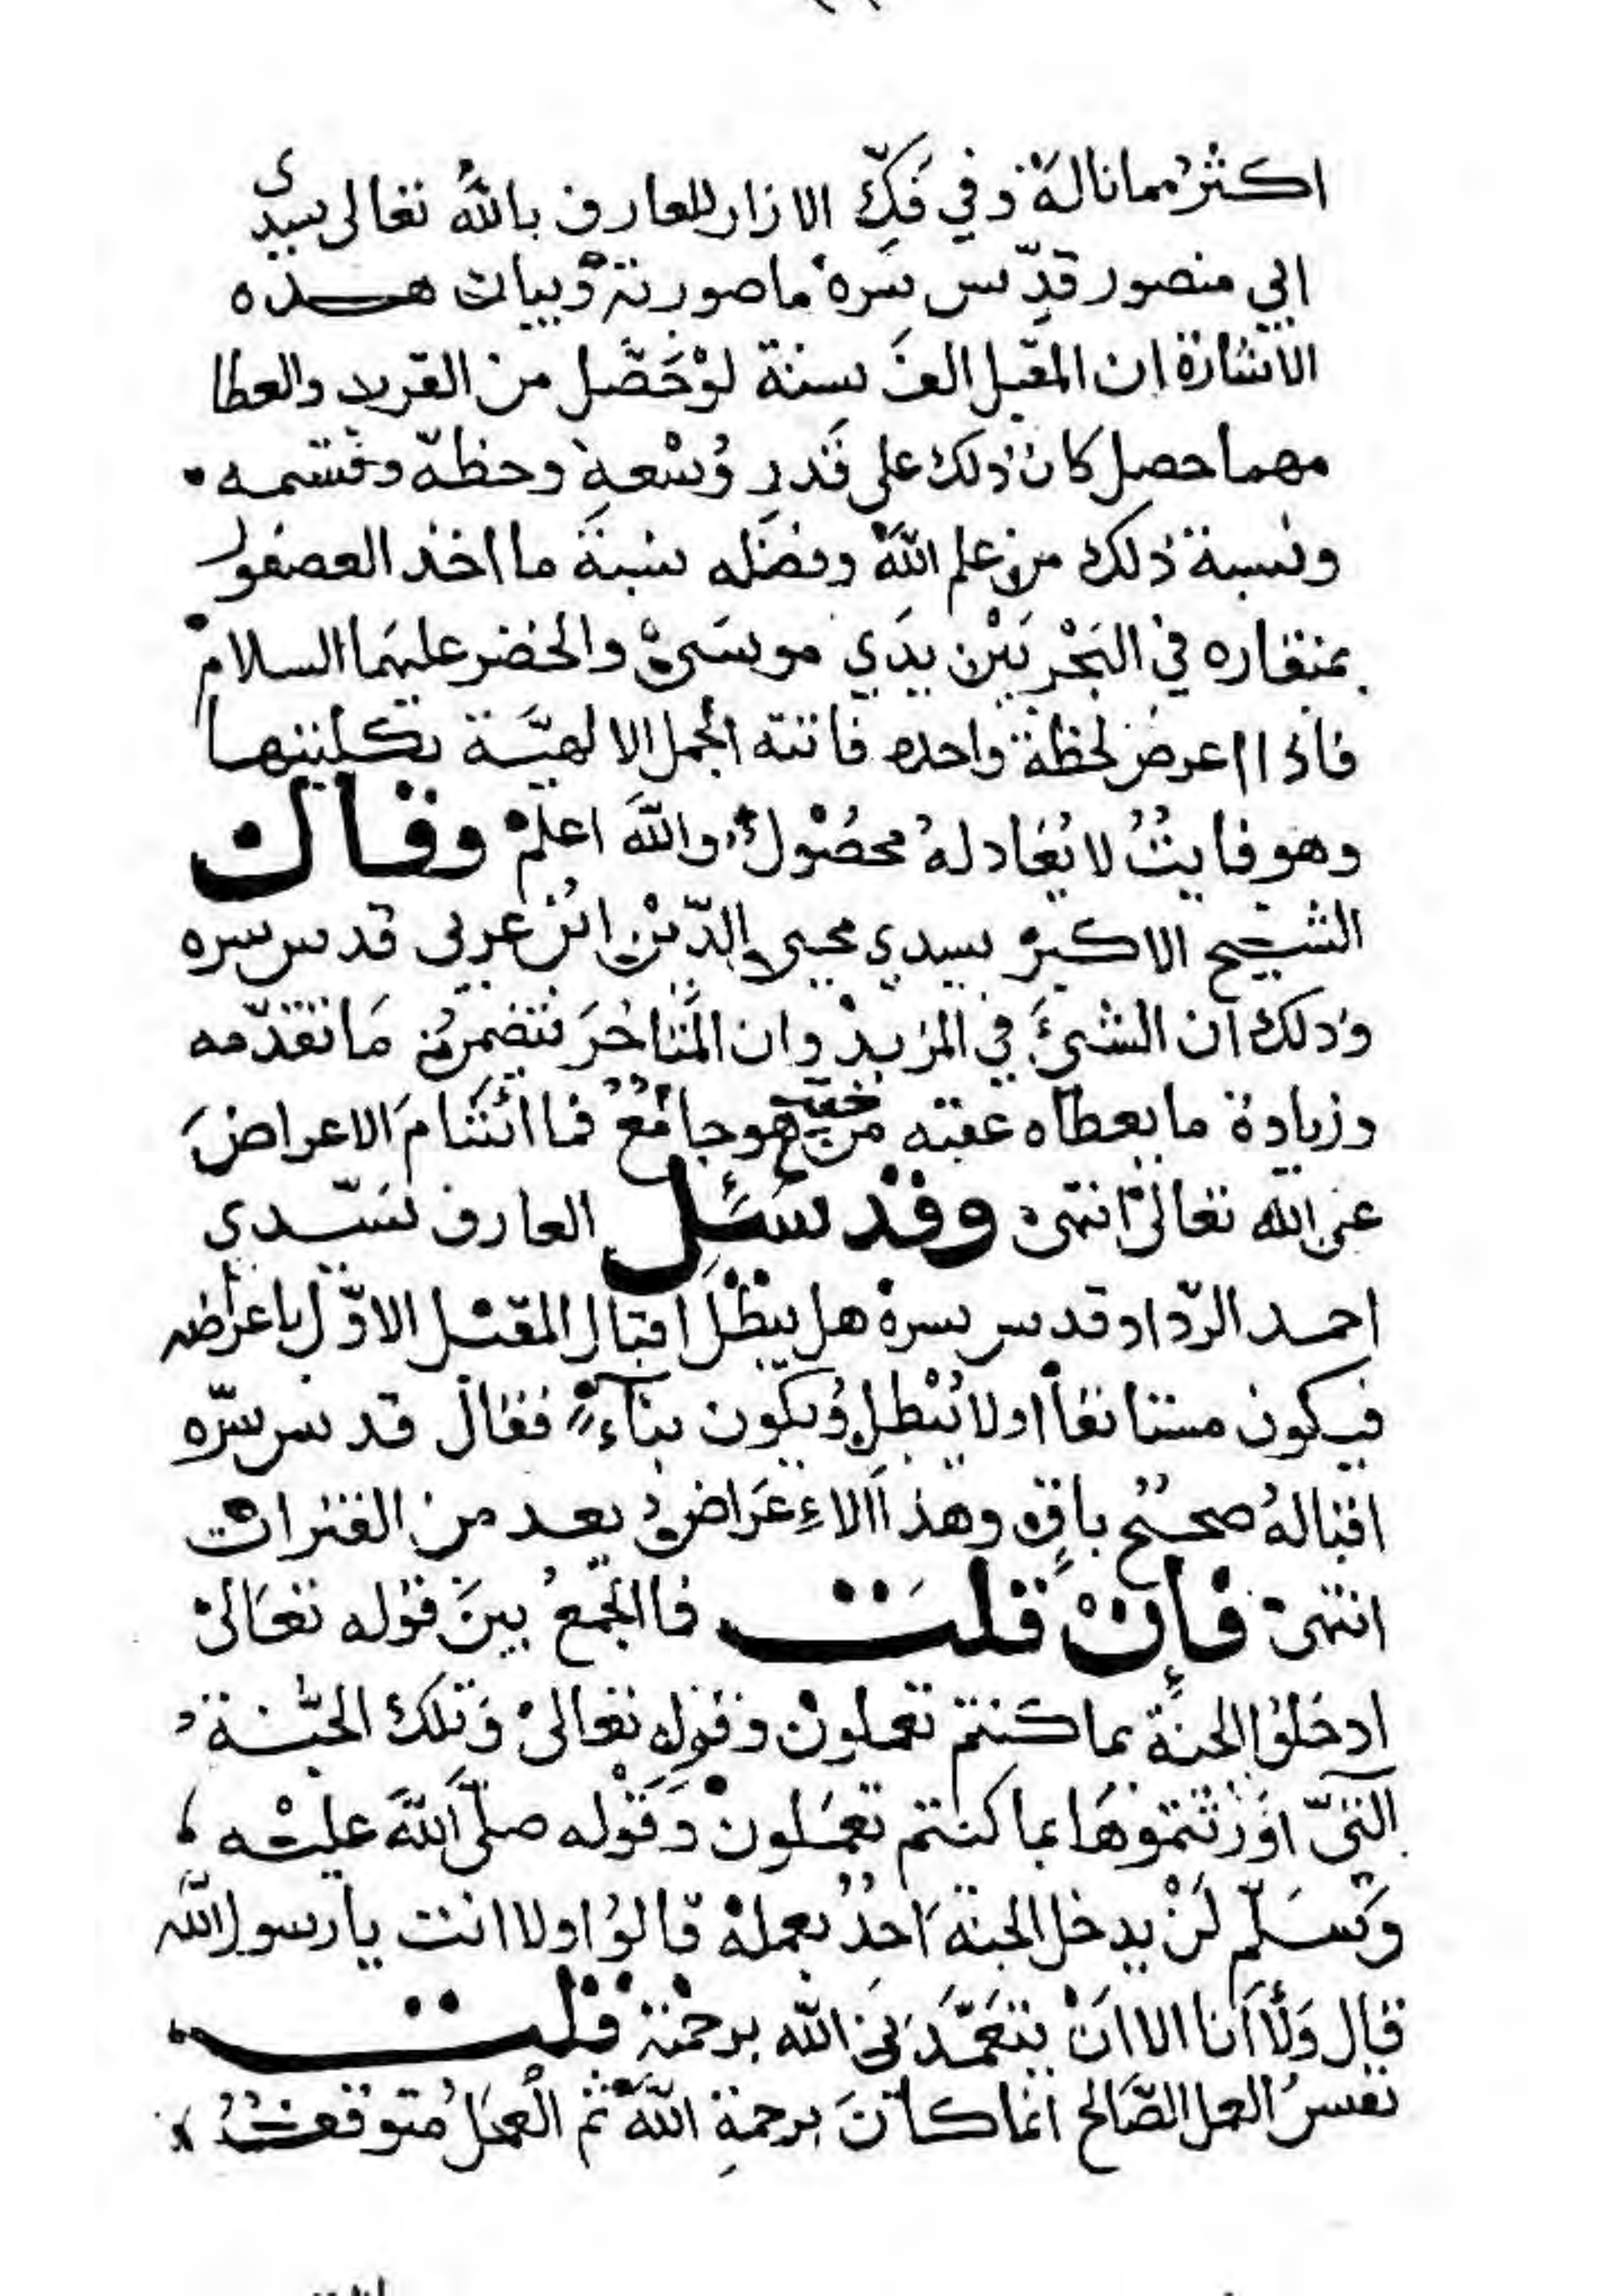 اكثرُ مما نالهُ وفي فكّ الازار للعارف بالله تعالى سيدى
ابي منصور قدّس سره ما صورته وبيان هذه
الاشارة ان المقبل الف سنة لو حَصَّل من القرب والعطا
مهما حصل كان ذلك على قَدرِ وُسْعهِ وحظه وقسمه
ونسبة ذلك من علم الله وفضله نسبة ما اخذ العصفور
بمنقاره في البَحْر بَيْن يدَي موسَى والخضر عليهما السلام
فاذا اعرض لحظة واحده فاتته الجمل الالهيَّة بكليتها
وهو فايتُ لا يُعَادلهُ محصُول والله اعلم وقال
الشيخ الاكبر سيدي محيى الدّين ابن عربى قدس سره
وذلك ان الشئَ في المزيد وان المتاخرَ تتضمن مَا تقدّمه
وزيادة ما يعطاه عقبه من حيث هو جامع فما اشَامَ الاعراضَ
عن الله تعالى انتهى وقد سُئِل العارف سَيّدي
احمد الردّاد قدس سره هل يبطل اقبال المقبل الاوّل باعراضه
فيكون مستانفاً او لا يُبْطل ويكون بناءً فقال قدس سرّه
اقبالهُ صحيحُ باقٍ وهذا الاعَراض يعد من الفترات
انتهى فإنْ قلت فما الجمعُ بينَ قوله تعَالى
ادخلوا الجنة بما كنتم تعملون وقوله تعالى وَتلك الجنّة
التىّ اوْرثتموهَا بما كنتم تعمَلون وقوله صلّى اللهَ عليْه
وَسَلّم لَنْ يدخل الجنة احدُ بعمله قالوُا ولا انت يا رسول الله
قال وَلا انا الا انْ يتغَمَّدَنىَ الله برحمته قلت
نفسُ العمل الصَّالح انما كان برحمةِ الله ثم الْعمَلُ متوقفُ